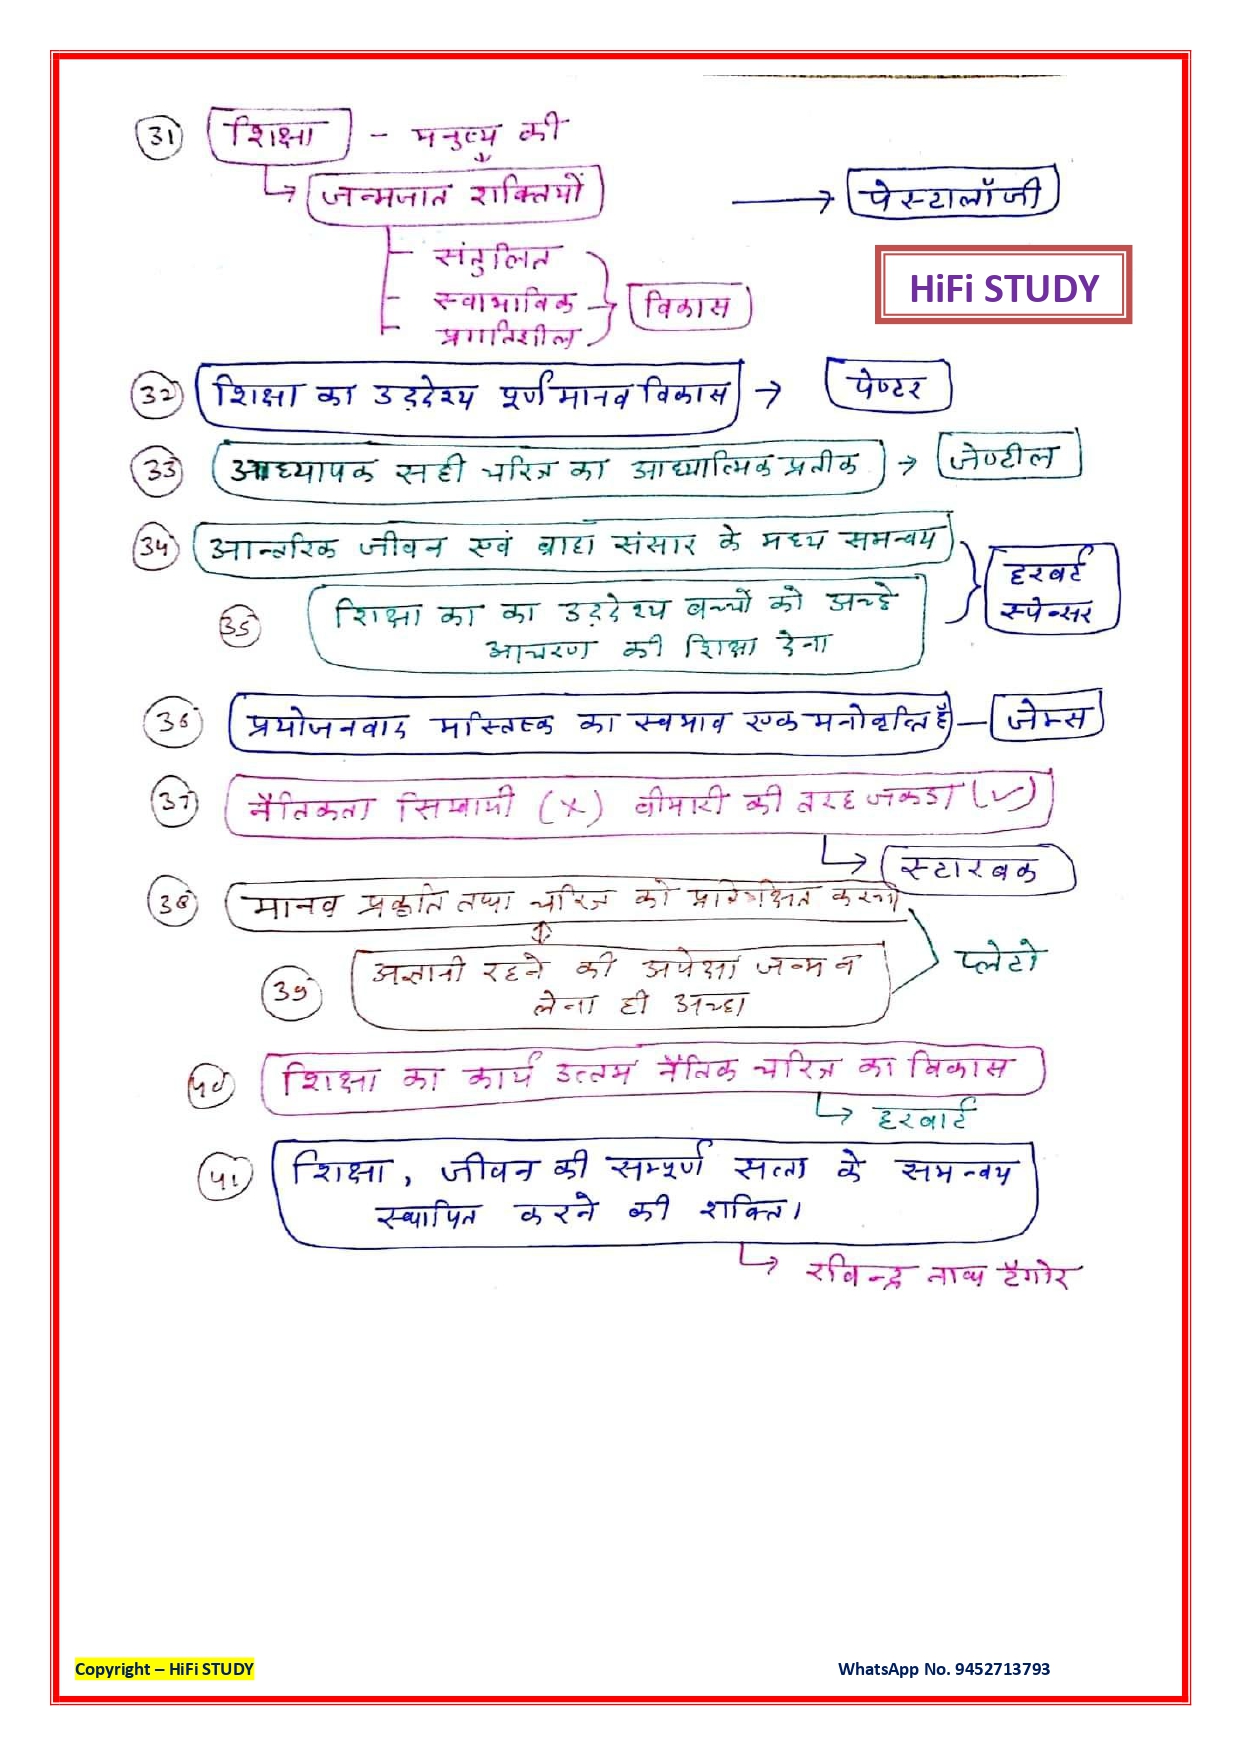 31 शिक्षा - मनुष्य की
जन्मजात शक्तियों → पेस्टालॉजी
संतुलित
स्वाभाविक → विकास
प्रगतिशील
HiFi STUDY
32 शिक्षा का उद्देश्य पूर्ण मानव विकास → पेण्टर
33 अध्यापक सही चरित्र का आध्यात्मिक प्रतीक → जेण्टील
34 आन्तरिक जीवन एवं ब्राह्य संसार के मध्य समन्वय
हरबर्ट
स्पेन्सर
35 शिक्षा का का उद्देश्य बच्चों को अच्छे
आचरण की शिक्षा देना
36 प्रयोजनवाद मस्तिष्क का स्वभाव एक मनोवृत्ति है - जेम्स
37 नैतिकता सिखायी (×) बीमारी की तरह जकडा (✓)
स्टारबक
38 मानव प्रकृति तथा चरित्र को प्रशिक्षित करना
प्लेटो
39 अज्ञानी रहने की अपेक्षा जन्म न
लेना ही अच्छा
40 शिक्षा का कार्य उत्तम नैतिक चरित्र का विकास
हरबार्ट
41 शिक्षा, जीवन की सम्पूर्ण सत्ता के समन्वय
स्थापित करने की शक्ति।
रविन्द्र नाथ टैगोर
Copyright – HiFi STUDY WhatsApp No. 9452713793